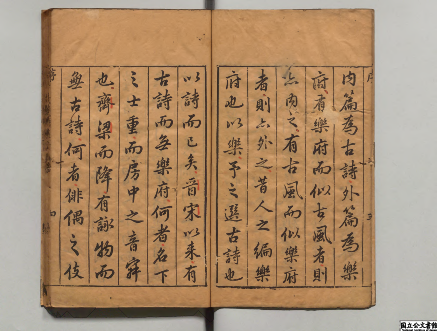 内篇為古詩外篇為樂
府有樂府而似古風者則
亦内之有古風而似樂府
者則亦外之昔人之編樂
府也以樂予之選古詩也
以詩而已矣晉宋以来有
古詩而無樂府何者名下
之士重而房中之音寐
也齊梁而降有詠物而
無古詩何者俳偶之伎
序
三
四
国立公文書館